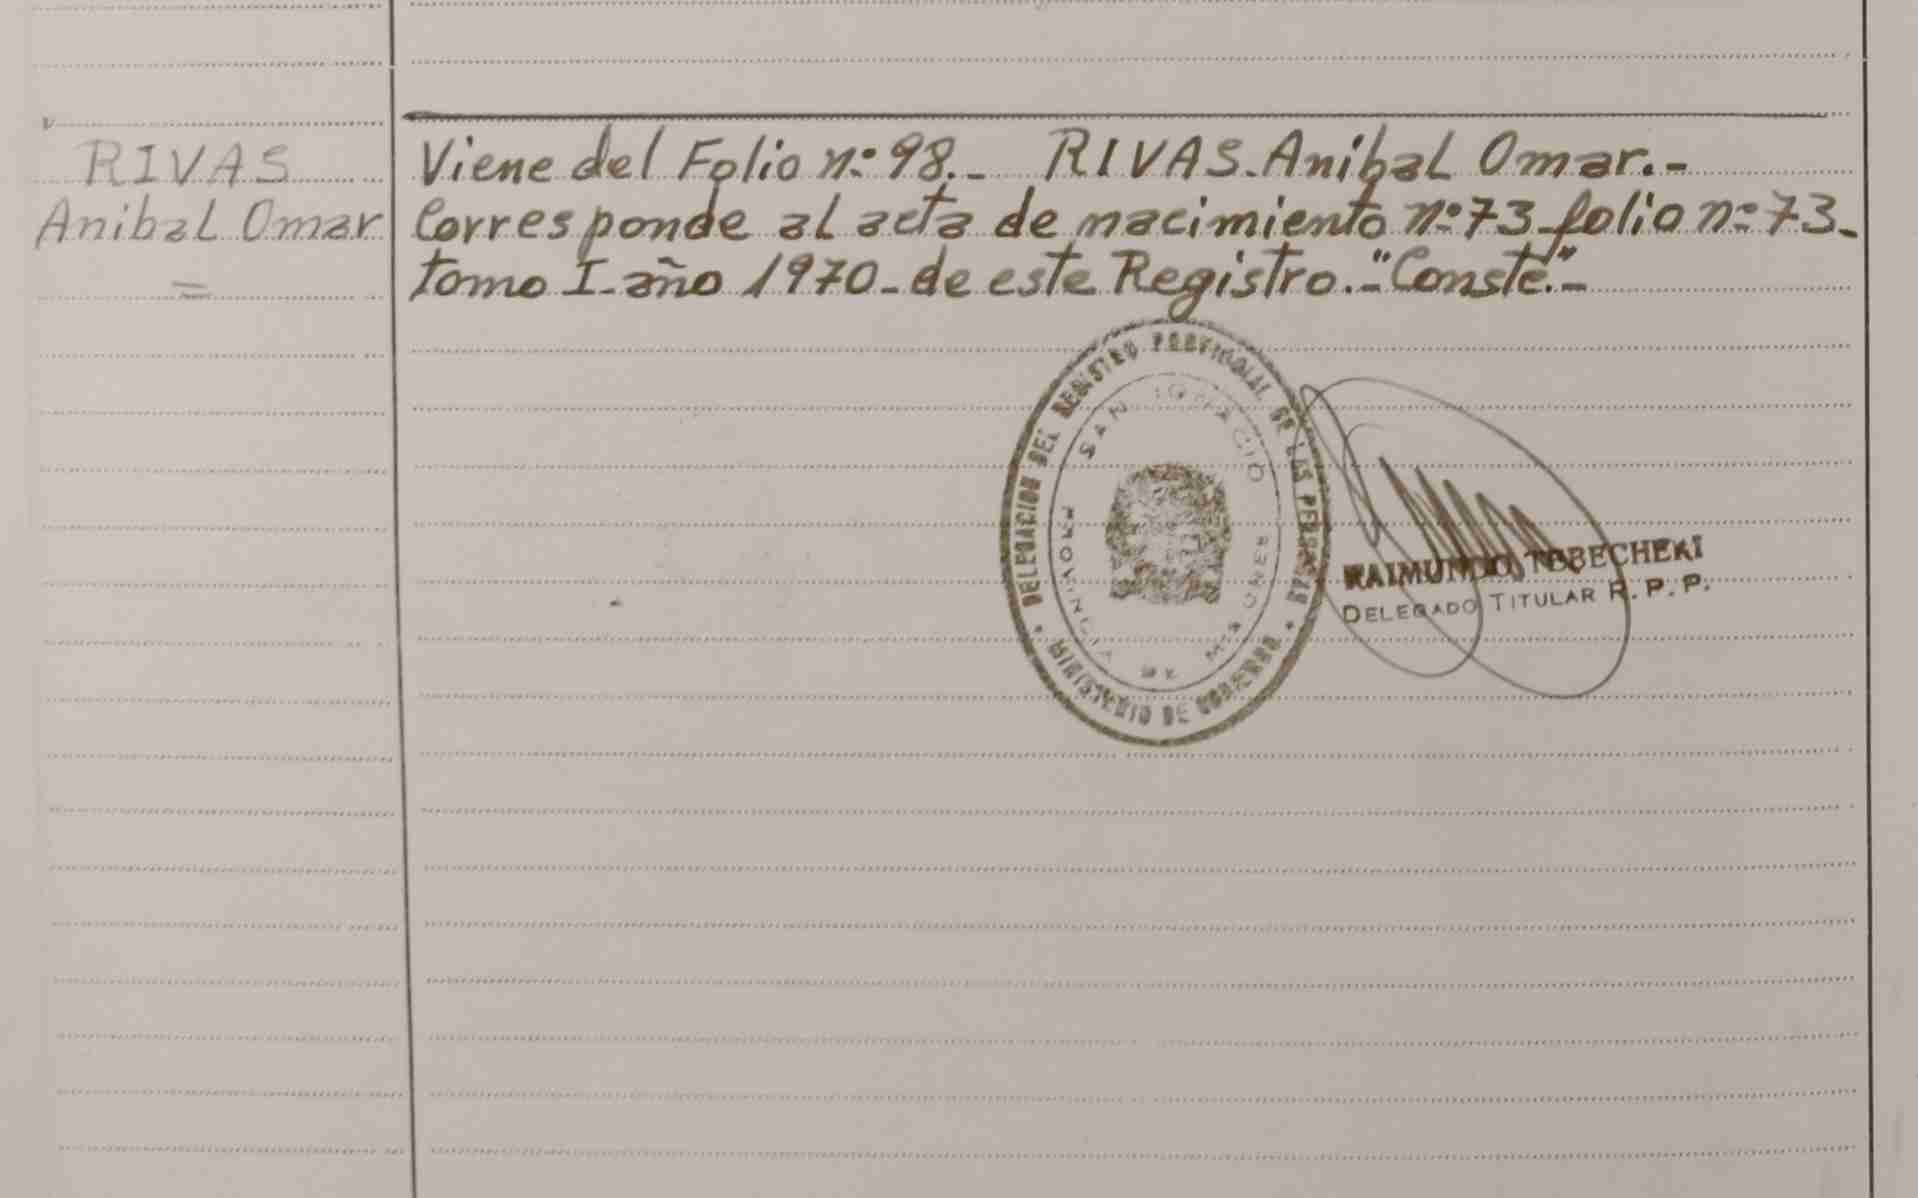 RIVAS
Anibal Omar
Viene del Folio n:98.- RIVAS. Anibal Omar.-
Corresponde al acta de nacimiento n:73-folio n:73-
tomo I-año 1970-de este Registro.-"Conste".-
DELEGACION DEL REGISTRO PROVINCIAL DE LAS PERSONAS
MINISTERIO DE GOBIERNO
SAN IGNACIO
PROVINCIA DE MISIONES
RAIMUNDO
DELEGADO TITULAR R.P.P.